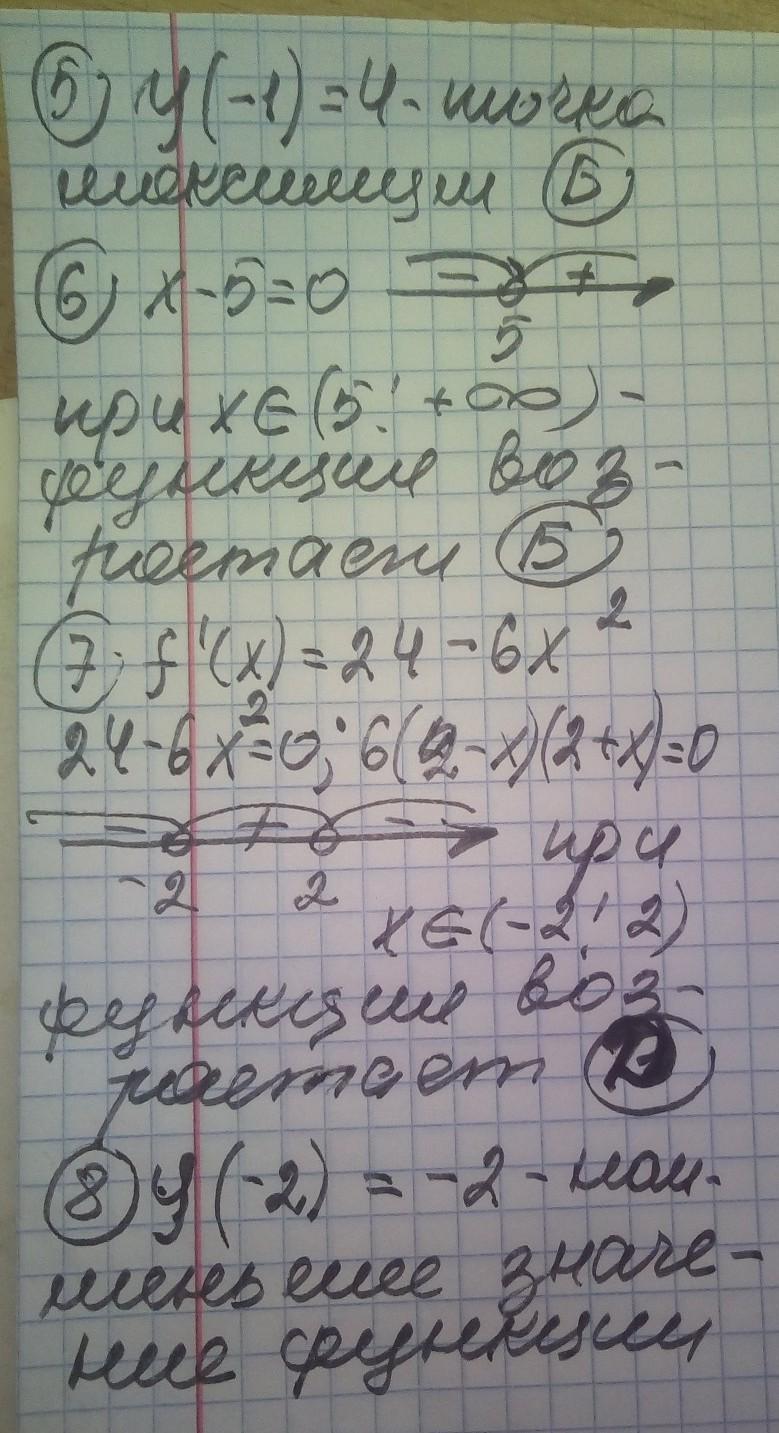 5) y(-1)=4 - точка
максимум Б
6) x-5=0 - +
5
при x∈(5; +∞) -
функция воз-
растает Б
7. f'(x)=24-6x²
24-6x²=0; 6(2-x)(2+x)=0
- + - при
-2 2
x∈(-2; 2)
функция воз-
растает
8) y(-2) = -2 - наи-
меньшее значе-
ние функции